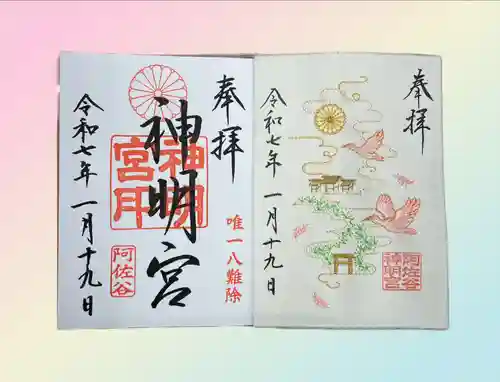 奉拝
神明宮
神明宮
唯一八難除
令和七年 一月十九日
阿佐谷
奉拝
令和七年 一月十九日
阿佐谷
神明宮